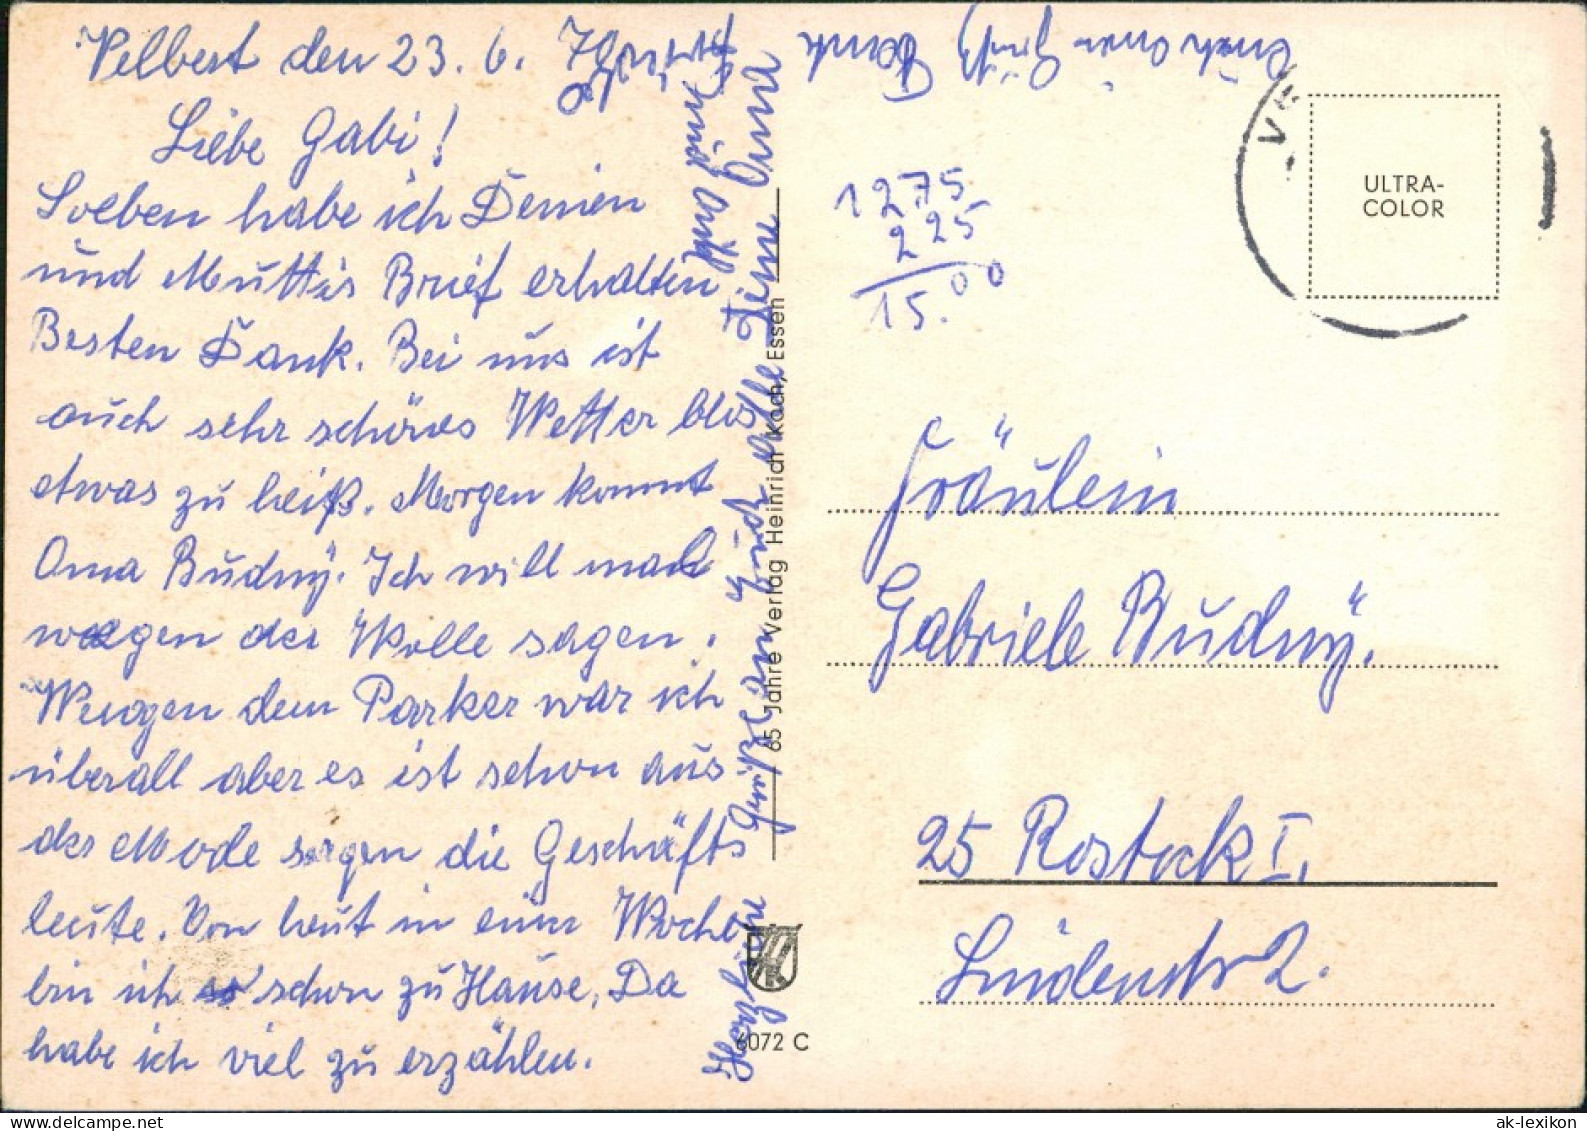 Velbert den 23. 6.
Liebe Gabi!
Soeben habe ich Deinen
und Muttis Brief erhalten
Besten Dank. Bei uns ist
auch sehr schönes Wetter blos
etwas zu heiß. Morgen kommt
Oma Budny. Ich will mal
wegen der Wolle sagen.
Wengen dem Parker war ich
überall aber es ist schon aus
der Mode sagen die Geschäfts
leute. Von heut in einer Woche
bin ich schon zu Hause, Da
habe ich viel zu erzählen.
Herzliche Grüße an Euch alle Deine Oma
und auch
Dank
1275
225
15.00
ULTRA-
COLOR
V
65 Jahre Verlag Heinrich Koch, Essen
6072 C
Fräulein
Gabriele Budny.
25 Rostock I.
Lindenstr 2.
ak-lexikon